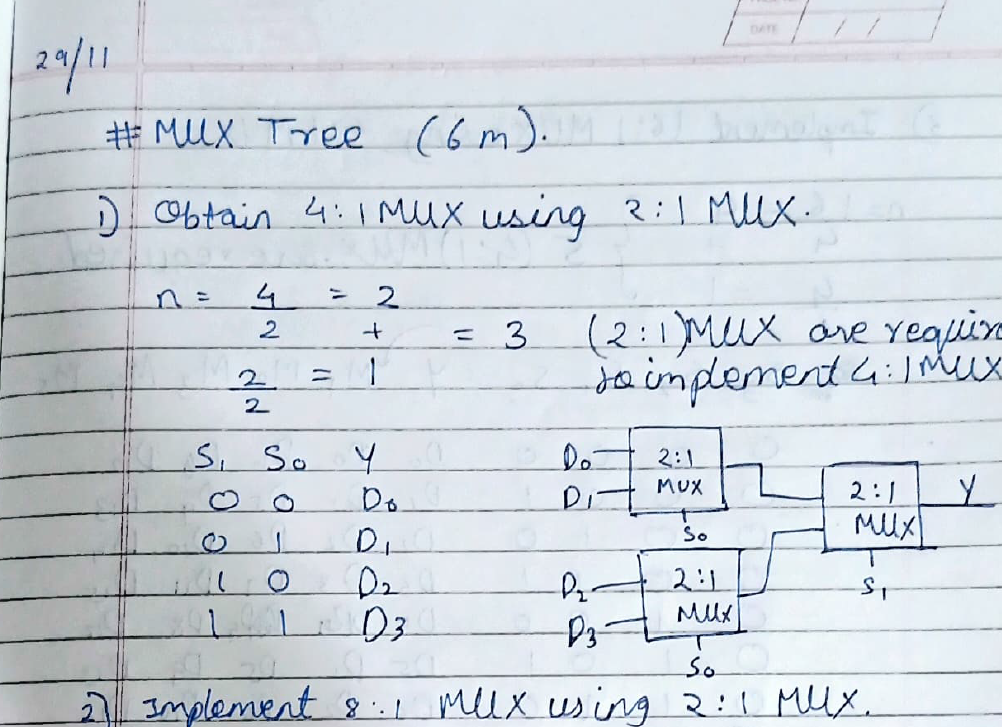 DATE / /
29/11
# MUX Tree (6m).
1) Obtain 4:1 MUX using 2:1 MUX.
n = 4/2 = 2
+ = 3 (2:1) MUX are require
2/2 = 1 to implement 4:1 MUX
S1 S0 Y
0 0 D0
0 1 D1
1 0 D2
1 1 D3
D0 D1 2:1 MUX S0
D2 D3 2:1 MUX S0
2:1 MUX S1 Y
2) Implement 8:1 MUX using 2:1 MUX.